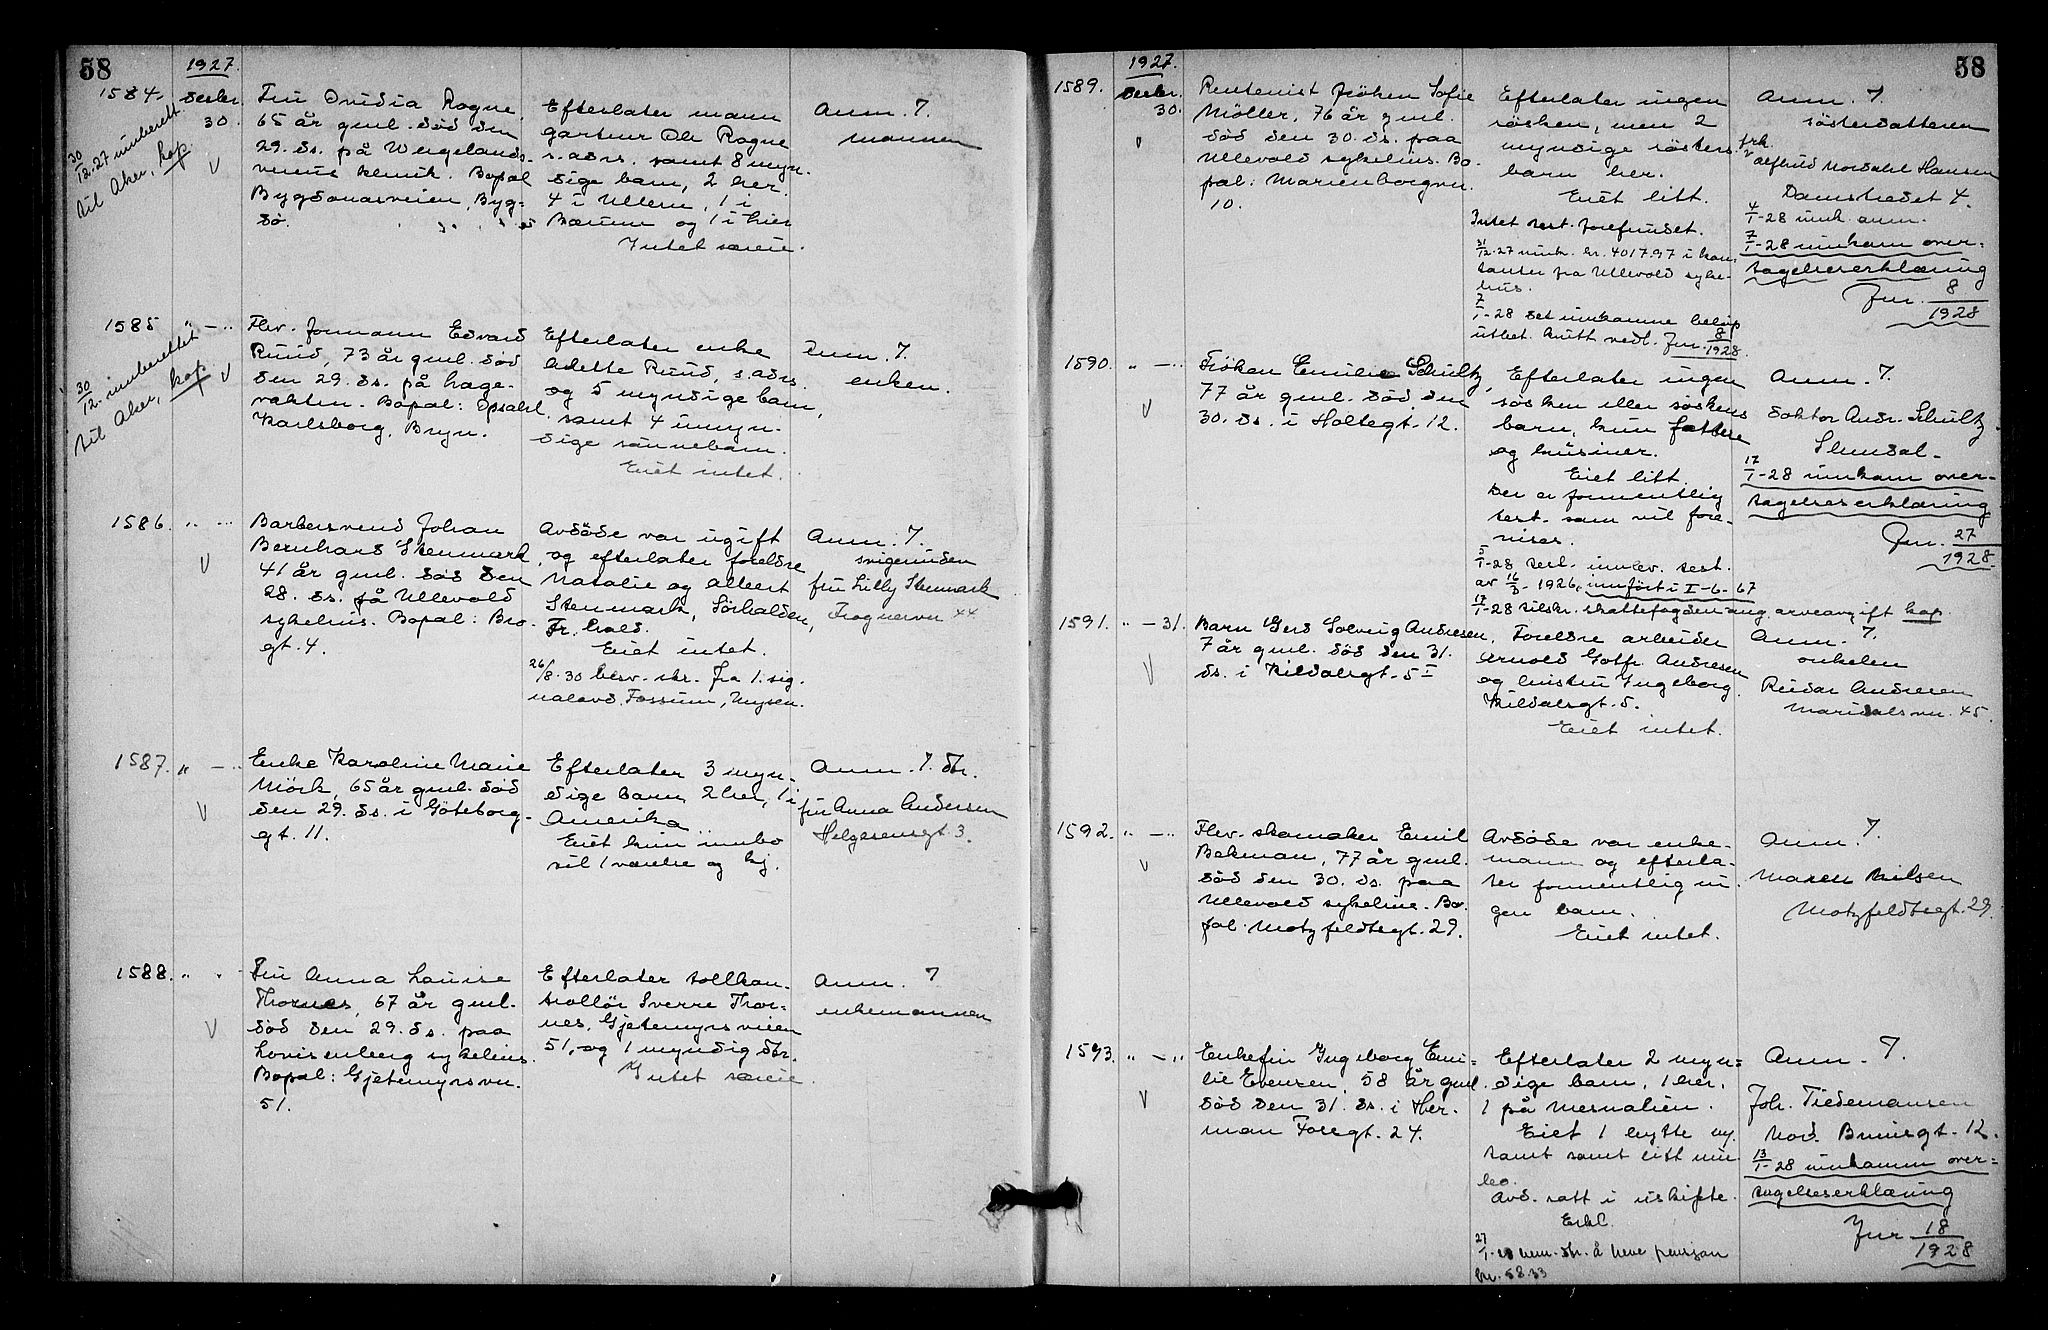 58
1927.
1584.
Desbr.
30.
30/12-27 innberett.
til Aker, kop
Fru Ovidia Rogne,
65 år gml. död den
29. ds. på Wergelands-
veiens klinik. Bopal
Bygdönesveien, Byg-
dö.
Efterlater mann
gartner Ole Rogne
s. adrs. samt 8 myn-
dige barn, 2 her.
4 i Ullern, 1 i
Bærum og 1 i Lier
Intet særeie.
Anm. 7.
mannen
1585
" — "
30/12. innberettet
til Aker, kop
Fhv. formann Edvard
Ruud, 73 år gml. död
den 29. ds. på hage-
vakten. Bopal: Opsahl
Karlsborg, Bryn.
Efterlater enke
Adette Ruud, s. adrs.
og 5 myndige barn,
samt 4 umyn-
dige sönnebarn.
Eiet intet.
Anm. 7.
enken.
1586.
" — "
Barbersvend Johan
Bernhard Stenmark,
41 år gml. död den
28. ds. på Ullevold
sykehus. Bopal: Bro-
gt. 4.
Avdöde var ugift
og efterlater foreldre
Natalie og Albert
Stenmark, Sörhalden,
Fr. hald.
Eiet intet.
26/8-30 besv. skr. fra 1. sig-
nalavd. Fossum, Mysen.
Anm. 7.
svigerinden
fru Lilly Stenmark
Frognervn 44
1587.
" — "
Enke Karoline Marie
Mörk, 65 år gml. död
den 29. ds. i Göteborg-
gt. 11.
Efterlater 3 myn-
dige barn 2 her, 1 i
Amerika.
Eiet kun innbo
til 1 værelse og kj.
Anm. 7. dtr.
fru Anna Andersen
Helgesensgt 3.
1588.
" "
Fru Anna Louise
Thornes, 67 år gml.
död den 29. ds. paa
Lovisenberg sykehus.
Bopal: Gjetemyrsvn.
51.
Efterlater tollkon-
trollör Sverre Thor-
nes, Gjetemyrsveien
51, og 1 myndig dtr.
Intet særeie.
Anm. 7
enkemannen
58
1927.
1589.
Desbr.
30.
Rentenist fröken Sofie
Möller, 76 år gml.
död den 30. ds. paa
Ullevold sykehus. Bo-
pal: Marienborgvn.
10.
Efterlater ingen
sösken, men 2
myndige sösters-
barn her.
Eiet litt.
Intet test. forefundet.
31/12-27 innk. kr. 4017.97 i kon-
tanter fra Ullevold syke-
hus.
7/1-28 det innkomne belöp
utbet. knutt vedl. Jnr. 8/1928.
Anm. 7.
sösterdatteren
frk.
Alfhild Nordahl Hansen
Damstredet 4.
4/1-28 innk. anm.
7/1-28 innkom over-
tagelseserklæring
Jnr. 8/1928
1590.
" — "
Fröken Emilie Schultz,
77 år gml. död den
30. ds. i Holtegt. 12.
Efterlater ingen
sösken eller söskens
barn, kun fettere
og kusiner.
Eiet litt.
Der er formentlig
test. som vil fore-
vises.
5/1-28 test. innlev. test.
av 16/3-1926, innfört i I-6-67
17/1-28 tilskr. skattefogden ang. arveavgift kop.
Anm. 7.
doktor Andr. Schultz
Slemdal-
17/1-28 innkom over-
tagelseserklæring
Jnr. 27/1928.
1591.
" — 31.
Barn Gerd Solveig Andresen,
7 år gml. död den 31.
ds. i Kildalsgt. 5 I
Foreldre arbeider
Arnold Gotfr. Andresen
og hustru Ingeborg.
Kildalsgt. 5.
Eiet intet.
Anm. 7.
onkelen
Reidar Andresen
Maridalsvn. 45.
1592.
" — "
Fhv. skomaker Emil
Bekman, 77 år gml.
död den 30. ds. paa
Ullevold sykehus. Bo-
pal. Motzfeldtsgt. 29.
Avdöde var enke-
mann og efterla-
ter formentlig in-
gen barn.
Eiet intet.
Anm. 7.
Maren Nilsen
Motzfeldtsgt. 29.
1593.
" — "
Enkefru Ingeborg Emi-
lie Evensen, 58 år gml.
död den 31. ds. i Her-
man Fossgt. 24.
Efterlater 2 myn-
dige barn, 1 her,
1 på Mesnalien.
Eiet 1 hytte uv.
tomt samt litt inn-
bo.
Avd. satt i uskifte.
Erkl.
kr. 58.33
Anm. 7.
Joh. Tiedemansen
Nord. Brunsgt. 12.
13/1-28 innkomm over-
tagelseserklæring
Jnr 18/1928